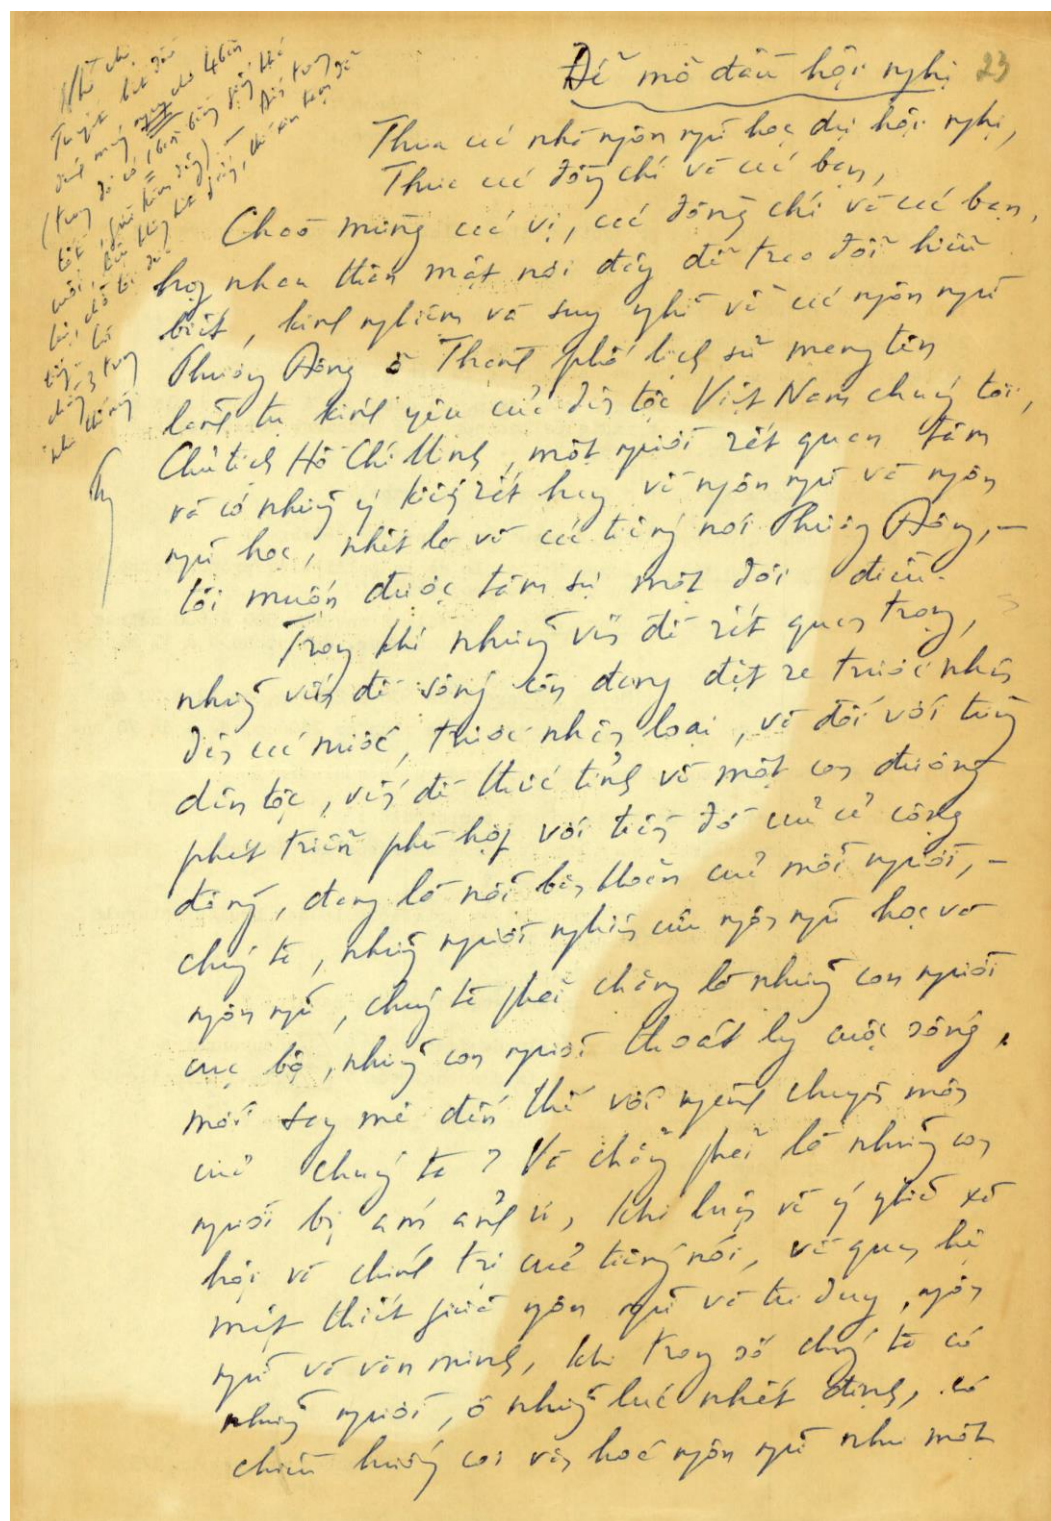 Để mở đầu hội nghị 23
Thưa các nhà ngôn ngữ học dự hội nghị,
Thưa các đồng chí và các bạn,
Chào mừng các vị, các đồng chí và các bạn,
họp nhau thân mật nơi đây để trao đổi hiểu
biết, kinh nghiệm và suy nghĩ về các ngôn ngữ
Phương Đông ở Thành phố lịch sử mang tên
lãnh tụ kính yêu của dân tộc Việt Nam chúng tôi,
Chủ tịch Hồ Chí Minh, một người rất quan tâm
và có những ý kiến rất hay về ngôn ngữ và ngôn
ngữ học, nhất là về các tiếng nói Phương Đông, –
tôi muốn được tâm sự một đôi điều.
Trong khi những vấn đề rất quan trọng,
những vấn đề sống còn đang đặt ra trước nhân
dân các nước, trước nhân loại, và đối với từng
dân tộc, vấn đề thức tỉnh về một con đường
phát triển phù hợp với tiến độ của cả cộng
đồng, đang là nỗi băn khoăn của mỗi người, –
chúng ta, những người nghiên cứu ngôn ngữ học và
ngôn ngữ, chúng ta phải chăng là những con người
cục bộ, những con người thoát ly cuộc sống,
mới say mê đến thế với ngành chuyên môn
của chúng ta? Và chẳng phải là những con
người bị ám ảnh ư, khi luận về ý nghĩa xã
hội và chính trị của tiếng nói, về quan hệ
mật thiết giữa ngôn ngữ và tư duy, ngôn
ngữ và văn minh, khi trong số chúng ta có
những người, ở những lúc nhất định, có
chiều hướng coi văn hoá ngôn ngữ như một
Nhờ chị
Tuyết
đánh máy ngay cho 4 bản